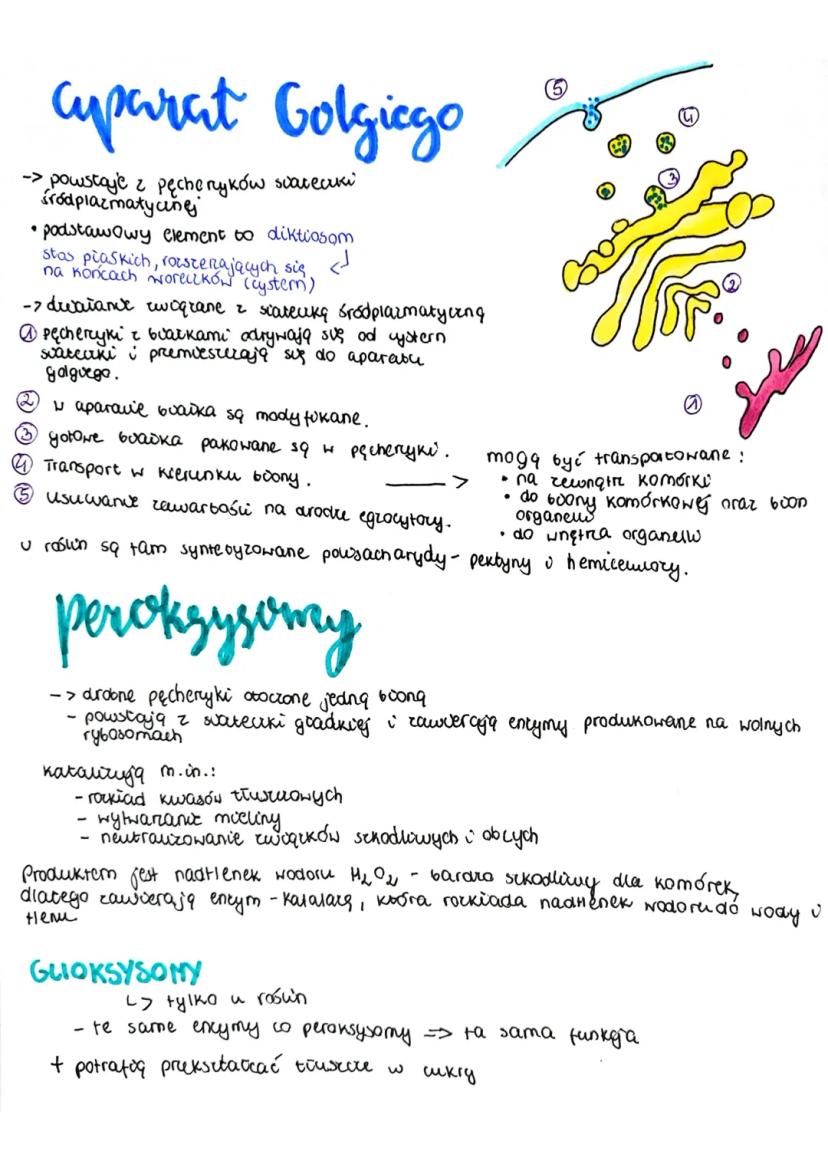 aparat Golgiego
-> powstaje z pęcherzyków siateczki
śródplazmatycznej
• podstawowy element to diktiosom
stos płaskich, rozszerzających się
na końcach woreczków (cystern)
-> działanie związane z siateczką śródplazmatyczną
① pęcherzyki z białkami odrywają się od cystern
siateczki i przemieszczają się do aparatu
golgiego.
② w aparacie białka są modyfikowane.
③ gotowe białka pakowane są w pęcherzyki.
④ Transport w kierunku błony. ⟶
⑤ usuwanie zawartości na drodze egzocytozy.
mogą być transportowane:
• na zewnątrz komórki
• do błony komórkowej oraz błon
organelli
• do wnętrza organelli
U roślin są tam syntetyzowane polisacharydy - pektyny i hemicelulozy.
⑤
④
③
②
①
peroksysomy
-> drobne pęcherzyki otoczone jedną błoną
- powstają z siateczki gładkiej i zawierają enzymy produkowane na wolnych
rybosomach
katalizują m.in.:
- rozkład kwasów tłuszczowych
- wytwarzanie mieliny
- neutralizowanie związków szkodliwych i obcych
Produktem jest nadtlenek wodoru H₂O₂ - bardzo szkodliwy dla komórek,
dlatego zawierają enzym - katalazę, która rozkłada nadtlenek wodoru do wody i
tlenu
GLIOKSYSOMY
↳ tylko u roślin
- te same enzymy co peroksysomy => ta sama funkcja
+ potrafią przekształcać tłuszcze w cukry